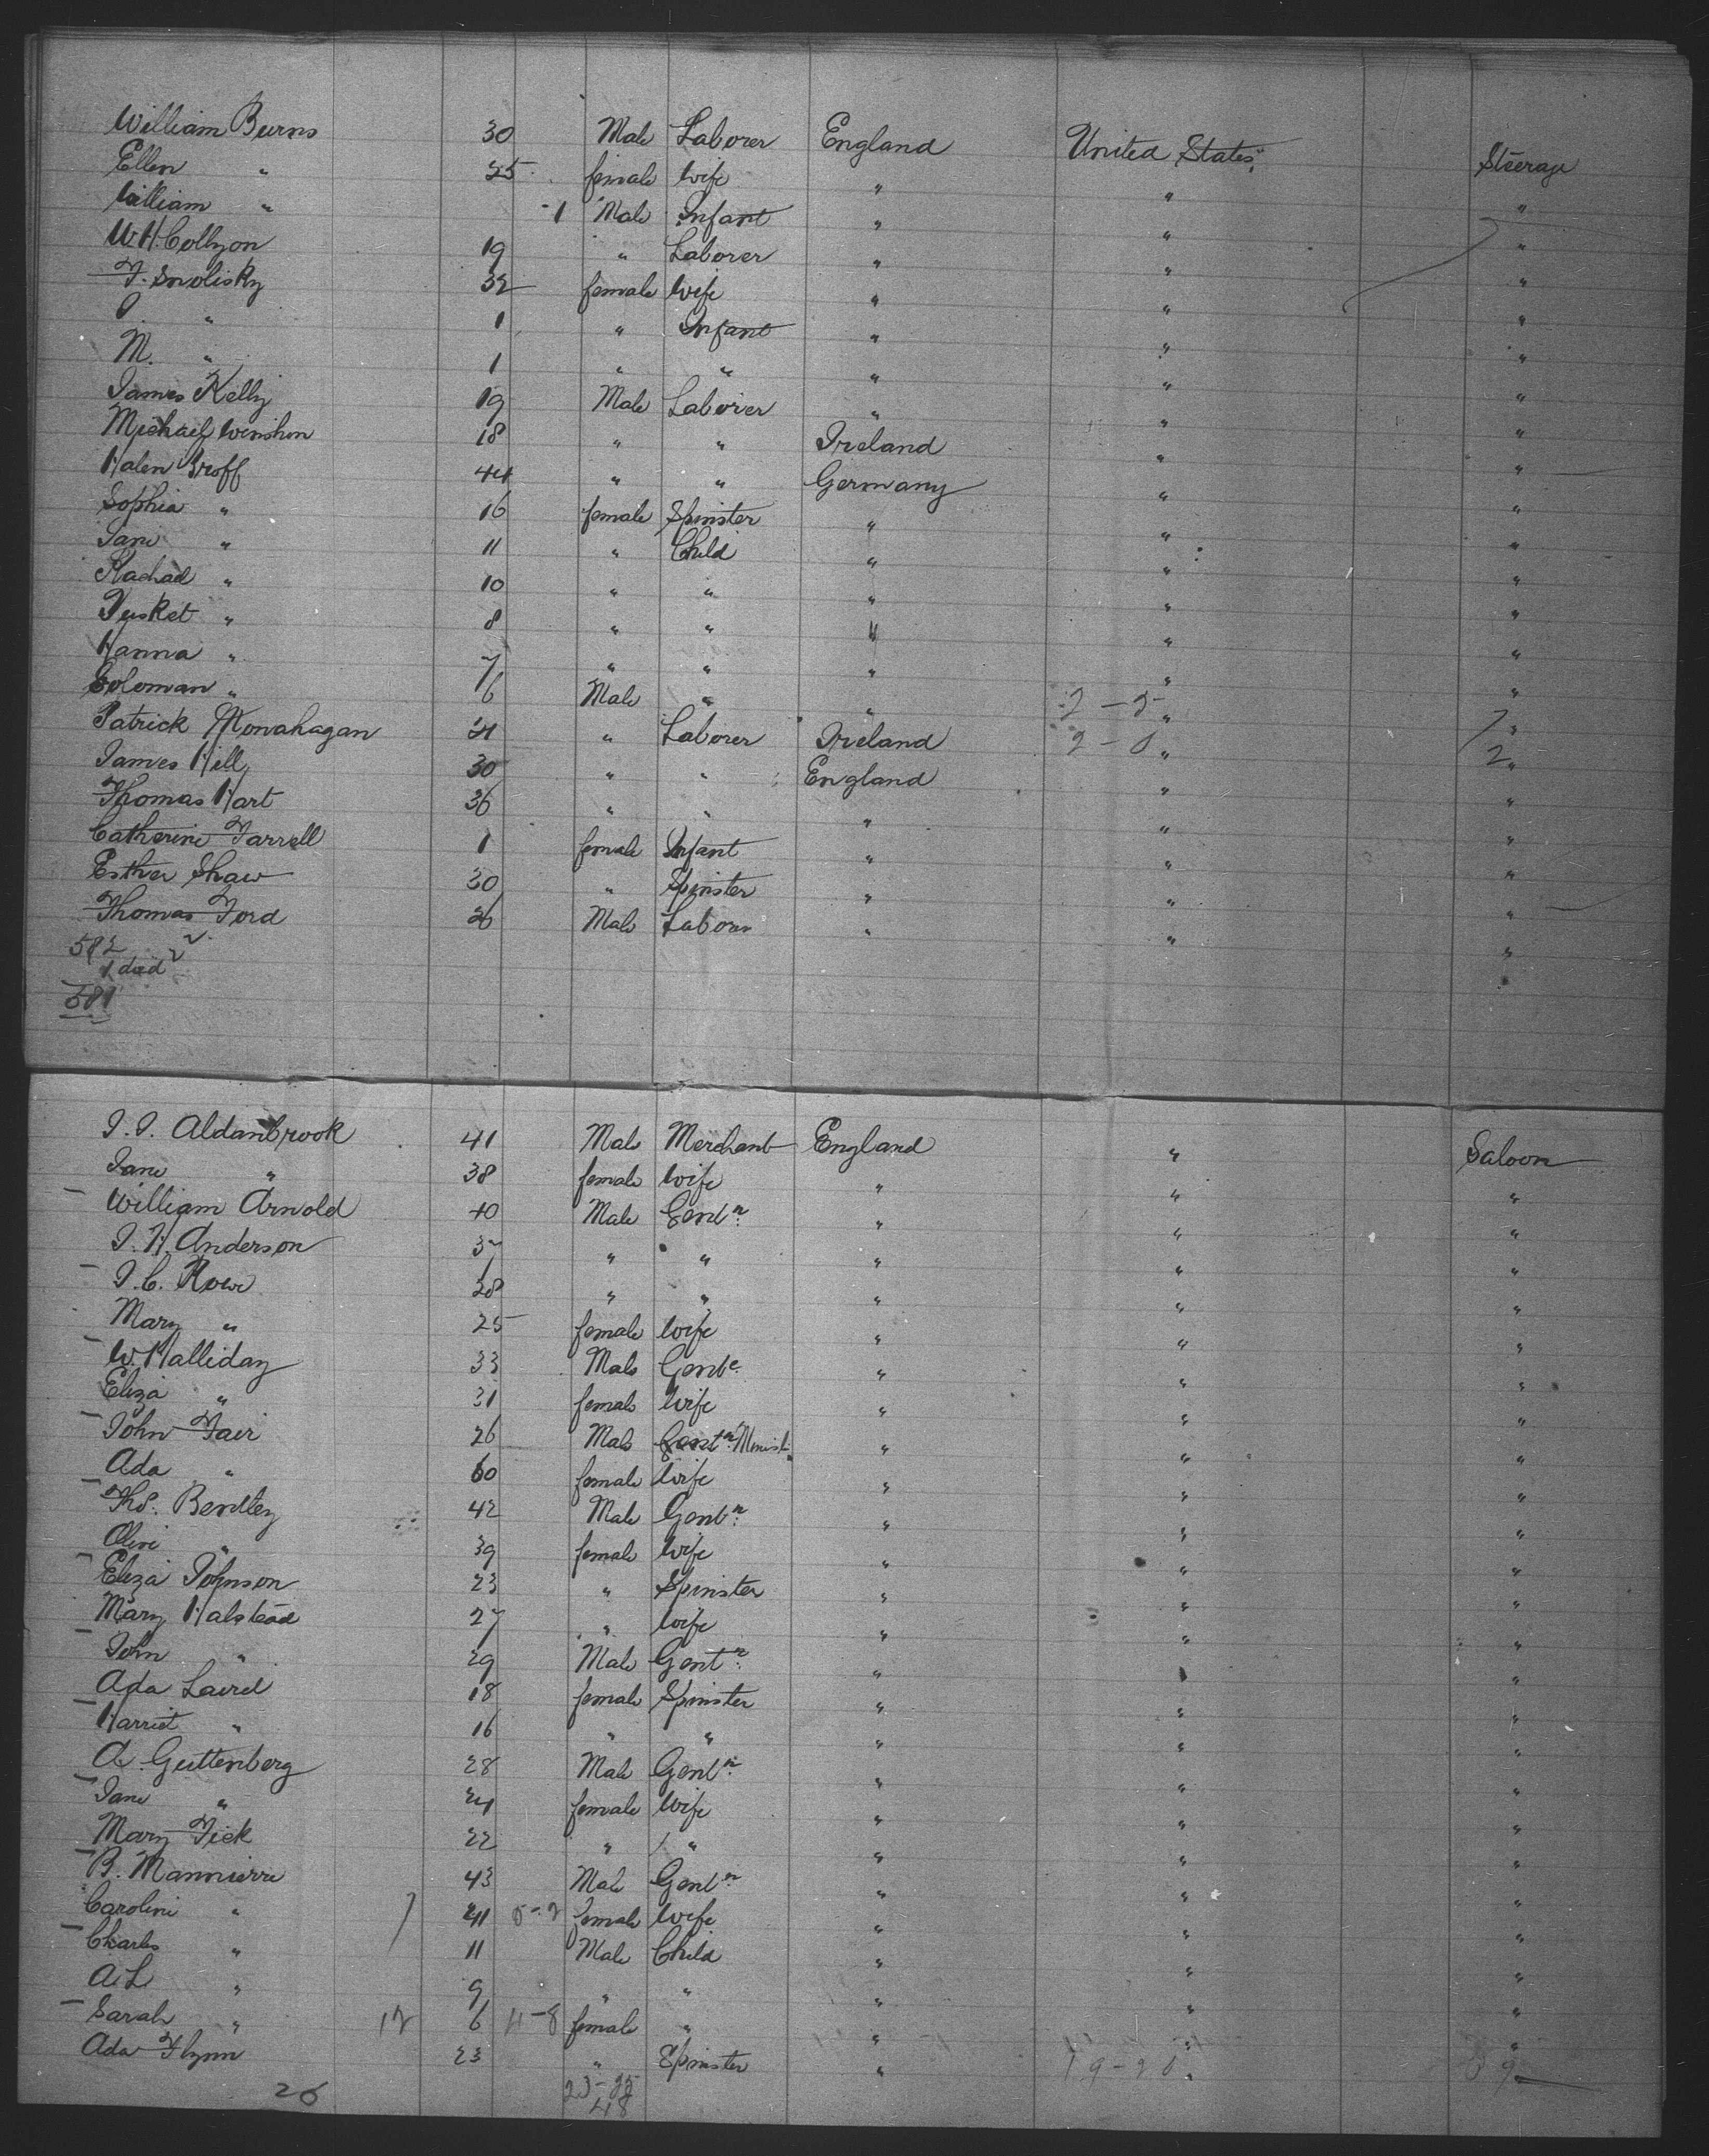 William Burns 30 Male Laborer England United States Steerage
Ellen " 25 female wife " " "
William " 1 Male Infant " " "
W.H. Collyon 19 " Laborer " " "
F. Smolisky 32 female wife " " "
" 1 " Infant " " "
M. " 1 " " " " "
James Kelly 19 Male Laborer " " "
Michael Winshon 18 " " Ireland " "
Halen Groff 44 " " Germany " "
Sophia " 16 female Spinster " " "
Jane " 11 " Child " " "
Rachael " 10 " " " " "
Yusket " 8 " " " " "
Hanna " 7 " " " " "
Soloman " 6 Male " " "
Patrick Monahagan 21 " Laborer Ireland " "
James Hill 30 " " England " "
Thomas Hart 36 " " " " "
Catherine Farrell 1 female Infant " " "
Esther Shaw 30 " Spinster " " "
Thomas Ford 26 Male Laborer " " "
582
1 died
581
J.J. Aldanbrook 41 Male Merchant England " Saloon
Jane " 38 female wife " " "
William Arnold 40 Male Gentn " " "
J.H. Anderson 37 " " " " "
J.C. Rowe 28 " " " " "
Mary " 25 female wife " " "
W. Halliday 33 Male Gent " " "
Eliza " 31 female wife " " "
John Fair 26 Male Gentn Minist " " "
Ada " 60 female wife " " "
Ths. Bentley 42 Male Gentn " " "
Olive " 39 female wife " " "
Eliza Johnson 23 " Spinster " " "
Mary Halstead 27 " wife " " "
John " 29 Male Gentn " " "
Ada Laird 18 female Spinster " " "
Harriet " 16 " " " " "
A. Guttenberg 28 Male Gentn " " "
Jane " 24 female wife " " "
Mary Fick 22 " " " " "
B. Mannierre 43 Male Gentn " " "
Caroline " 41 5-2 female wife " " "
Charles " 11 Male Child " " "
A.L " 9 " " " " "
Sarah " 12 6 4-8 female " " " "
Ada Flynn 23 " Spinster " 19-20
26 23-25
48